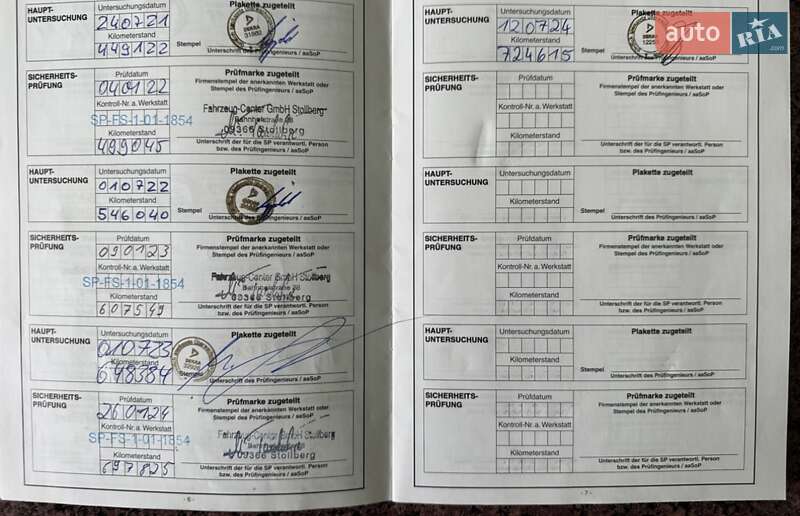 HAUPT-
UNTERSUCHUNG
Untersuchungsdatum
240721
Kilometerstand
449122
Plakette zugeteilt
DEKRA
Stempel
Unterschrift des Prüfingenieurs / aaSoP
SICHERHEITS-
PRÜFUNG
Prüfdatum
040122
Kontroll-Nr. a. Werkstatt
SP-FS-1-01-1854
Kilometerstand
499045
Prüfmarke zugeteilt
Firmenstempel der anerkannten Werkstatt oder
Stempel des Prüfingenieurs / aaSoP
Fahrzeug-Center GmbH Stollberg
Bahnhofstraße 28
09366 Stollberg
Unterschrift der für die SP verantwortl. Person
bzw. des Prüfingenieurs / aaSoP
HAUPT-
UNTERSUCHUNG
Untersuchungsdatum
010722
Kilometerstand
546040
Plakette zugeteilt
Stempel
Unterschrift des Prüfingenieurs / aaSoP
SICHERHEITS-
PRÜFUNG
Prüfdatum
090123
Kontroll-Nr. a. Werkstatt
SP-FS-1-01-1854
Kilometerstand
607549
Prüfmarke zugeteilt
Firmenstempel der anerkannten Werkstatt oder
Stempel des Prüfingenieurs / aaSoP
Fahrzeug-Center GmbH Stollberg
Bahnhofstraße 28
09366 Stollberg
Unterschrift der für die SP verantwortl. Person
bzw. des Prüfingenieurs / aaSoP
HAUPT-
UNTERSUCHUNG
Untersuchungsdatum
010723
Kilometerstand
648384
Plakette zugeteilt
DEKRA
Stempel
Unterschrift des Prüfingenieurs / aaSoP
SICHERHEITS-
PRÜFUNG
Prüfdatum
260124
Kontroll-Nr. a. Werkstatt
SP-FS-1-01-1854
Kilometerstand
697825
Prüfmarke zugeteilt
Firmenstempel der anerkannten Werkstatt oder
Stempel des Prüfingenieurs / aaSoP
Fahrzeug-Center GmbH Stollberg
09366 Stollberg
Unterschrift der für die SP verantwortl. Person
bzw. des Prüfingenieurs / aaSoP
- 6 -
HAUPT-
UNTERSUCHUNG
Untersuchungsdatum
120724
Kilometerstand
724615
Plakette zugeteilt
Stempel
Unterschrift des Prüfingenieurs / aaSoP
auto RIA.com
SICHERHEITS-
PRÜFUNG
Prüfdatum
Kontroll-Nr. a. Werkstatt
Kilometerstand
Prüfmarke zugeteilt
Firmenstempel der anerkannten Werkstatt oder
Stempel des Prüfingenieurs / aaSoP
Unterschrift der für die SP verantwortl. Person
bzw. des Prüfingenieurs / aaSoP
HAUPT-
UNTERSUCHUNG
Untersuchungsdatum
Kilometerstand
Plakette zugeteilt
Stempel
Unterschrift des Prüfingenieurs / aaSoP
SICHERHEITS-
PRÜFUNG
Prüfdatum
Kontroll-Nr. a. Werkstatt
Kilometerstand
Prüfmarke zugeteilt
Firmenstempel der anerkannten Werkstatt oder
Stempel des Prüfingenieurs / aaSoP
Unterschrift der für die SP verantwortl. Person
bzw. des Prüfingenieurs / aaSoP
HAUPT-
UNTERSUCHUNG
Untersuchungsdatum
Kilometerstand
Plakette zugeteilt
Stempel
Unterschrift des Prüfingenieurs / aaSoP
SICHERHEITS-
PRÜFUNG
Prüfdatum
Kontroll-Nr. a. Werkstatt
Kilometerstand
Prüfmarke zugeteilt
Firmenstempel der anerkannten Werkstatt oder
Stempel des Prüfingenieurs / aaSoP
Unterschrift der für die SP verantwortl. Person
bzw. des Prüfingenieurs / aaSoP
- 7 -